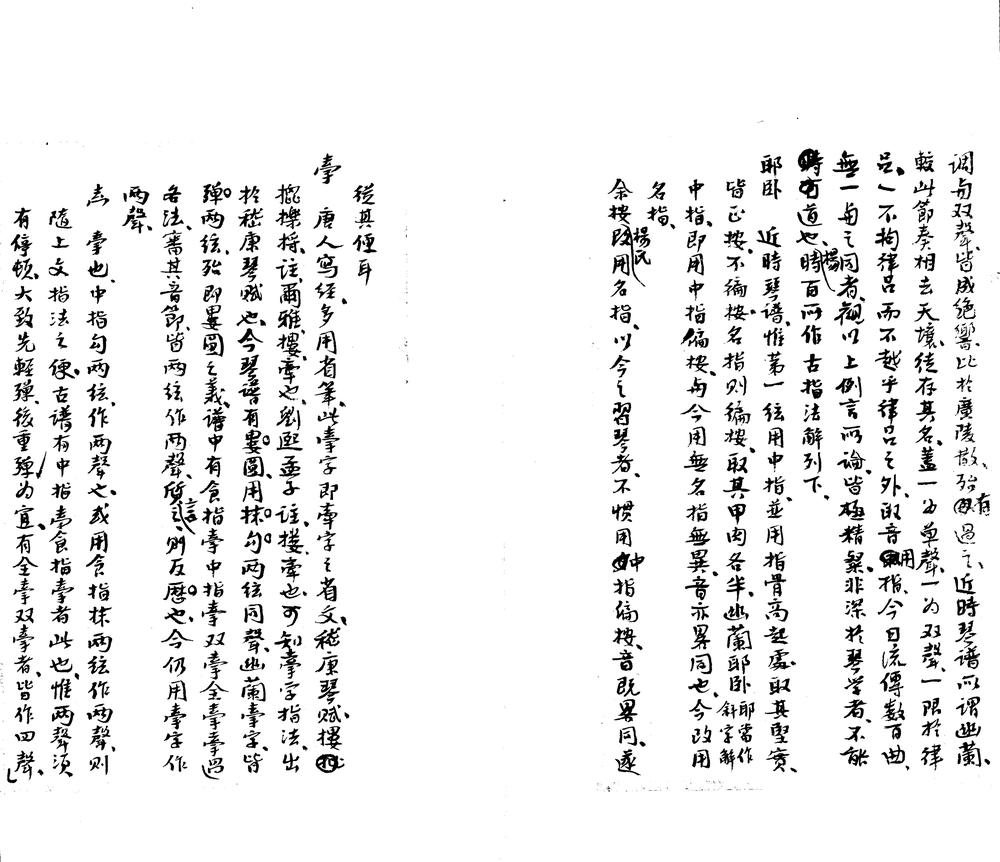 调与双聲、皆成絶響、比於廣陵散、殆有過之、近時琴譜所謂幽蘭、
較此節奏相去天壤、徒存其名、蓋一为单聲、一为双聲、一限於律
吕、一不拘律吕而不越乎律吕之外、取音用指、今日流傳数百曲、
無一与之同者、觀以上例言所論、皆極精粲、非深於琴学者、不能
道也、時百所作古指法解列下、
耶卧 近時琴譜、惟第一絃用中指、並用指骨高起處、取其堅實、
皆正按、不徧按、名指則徧按、取其甲肉各半、幽蘭耶卧耶當作斜字解
中指、即用中指偏按、与今用無名指無異、音亦畧同也、今改用
名指、
余按楊氏改用名指、以今之習琴者、不慣用中指偏按、音既畧同、遂
從其便耳、
牽 唐人寫經、多用省筆、此牽字即牽字之省文、嵇康琴賦、摟
擽捋、註、爾雅、摟、牽也、劉熙孟子註、摟、牽也、可知牽字指法、出
於嵇康琴賦也、今琴譜有婁圓、用抹勾兩絃同聲、幽蘭牽字、皆
弹兩絃、殆即婁圓之義、譜中有食指牽中指牽双牽全牽牽過
各法、審其音節、皆兩絃作兩聲、質言之、則反歷也、今仍用牽字作
兩聲、
牽也、中指勾兩絃、作兩聲也、或用食指抹兩絃作兩聲、則
隨上文指法之便、古譜有中指牽食指牽者、此也、惟兩聲須
有停頓、大致先輕弹、後重弹为宜、有全牽双牽者、皆作四聲、